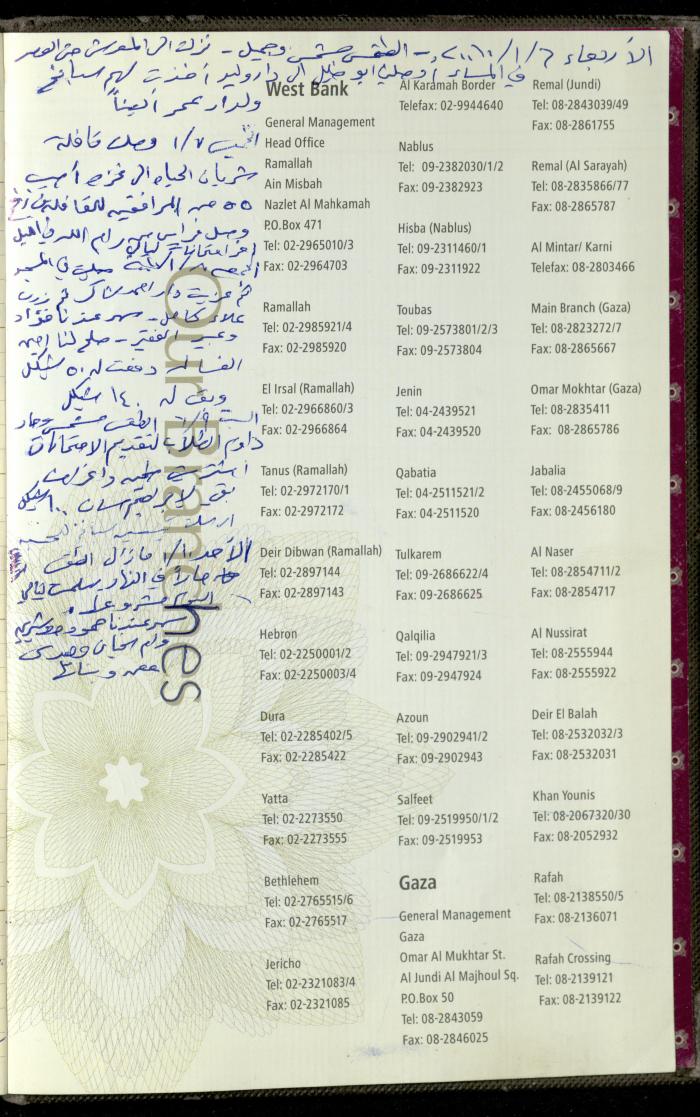 الأربعاء ٦/١/٢٠١٠ - الطقس مشمس وجميل - نزلت الى المفرش حتى العصر
في المساء أوصلني ابو خليل الى دار وليد أخذت لهم
ولدار عمر أيضاً
الخميس ٧/١ وصلت قافلة
شريان الحياة الى غزة أصيب
٥٥ من المرافقين للقافلة في
وصل فراس من رام الله في الليل
الجمعة ٨/١ صليت في المسجد
ثم عزيت دار احمد شاكر ثم زرت
علاء كامل - سهر عندنا فؤاد
وعبير الفقير - صلح لنا
الغسالة دفعت له ٥٠ شيكل
وبقي له ١٤٠ شيكل
السبت ٩/١ الطقس مشمس وحار
داوم الطلاب لتقديم الامتحانات
الأحد ١٠/١ ما زال الطقس
حاراً في النهار
سهر عندنا
Our Branches
West Bank
General Management
Head Office
Ramallah
Ain Misbah
Nazlet Al Mahkamah
P.O.Box 471
Tel: 02-2965010/3
Fax: 02-2964703
Ramallah
Tel: 02-2985921/4
Fax: 02-2985920
El Irsal (Ramallah)
Tel: 02-2966860/3
Fax: 02-2966864
Tanus (Ramallah)
Tel: 02-2972170/1
Fax: 02-2972172
Deir Dibwan (Ramallah)
Tel: 02-2897144
Fax: 02-2897143
Hebron
Tel: 02-2250001/2
Fax: 02-2250003/4
Dura
Tel: 02-2285402/5
Fax: 02-2285422
Yatta
Tel: 02-2273550
Fax: 02-2273555
Bethlehem
Tel: 02-2765515/6
Fax: 02-2765517
Jericho
Tel: 02-2321083/4
Fax: 02-2321085
Al Karamah Border
Telefax: 02-9944640
Nablus
Tel: 09-2382030/1/2
Fax: 09-2382923
Hisba (Nablus)
Tel: 09-2311460/1
Fax: 09-2311922
Toubas
Tel: 09-2573801/2/3
Fax: 09-2573804
Jenin
Tel: 04-2439521
Fax: 04-2439520
Qabatia
Tel: 04-2511521/2
Fax: 04-2511520
Tulkarem
Tel: 09-2686622/4
Fax: 09-2686625
Qalqilia
Tel: 09-2947921/3
Fax: 09-2947924
Azoun
Tel: 09-2902941/2
Fax: 09-2902943
Salfeet
Tel: 09-2519950/1/2
Fax: 09-2519953
Gaza
General Management
Gaza
Omar Al Mukhtar St.
Al Jundi Al Majhoul Sq.
P.O.Box 50
Tel: 08-2843059
Fax: 08-2846025
Remal (Jundi)
Tel: 08-2843039/49
Fax: 08-2861755
Remal (Al Sarayah)
Tel: 08-2835866/77
Fax: 08-2865787
Al Mintar/ Karni
Telefax: 08-2803466
Main Branch (Gaza)
Tel: 08-2823272/7
Fax: 08-2865667
Omar Mokhtar (Gaza)
Tel: 08-2835411
Fax: 08-2865786
Jabalia
Tel: 08-2455068/9
Fax: 08-2456180
Al Naser
Tel: 08-2854711/2
Fax: 08-2854717
Al Nussirat
Tel: 08-2555944
Fax: 08-2555922
Deir El Balah
Tel: 08-2532032/3
Fax: 08-2532031
Khan Younis
Tel: 08-2067320/30
Fax: 08-2052932
Rafah
Tel: 08-2138550/5
Fax: 08-2136071
Rafah Crossing
Tel: 08-2139121
Fax: 08-2139122